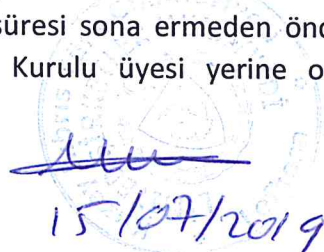 süresi sona ermeden önc
Kurulu üyesi yerine o
15/07/2019